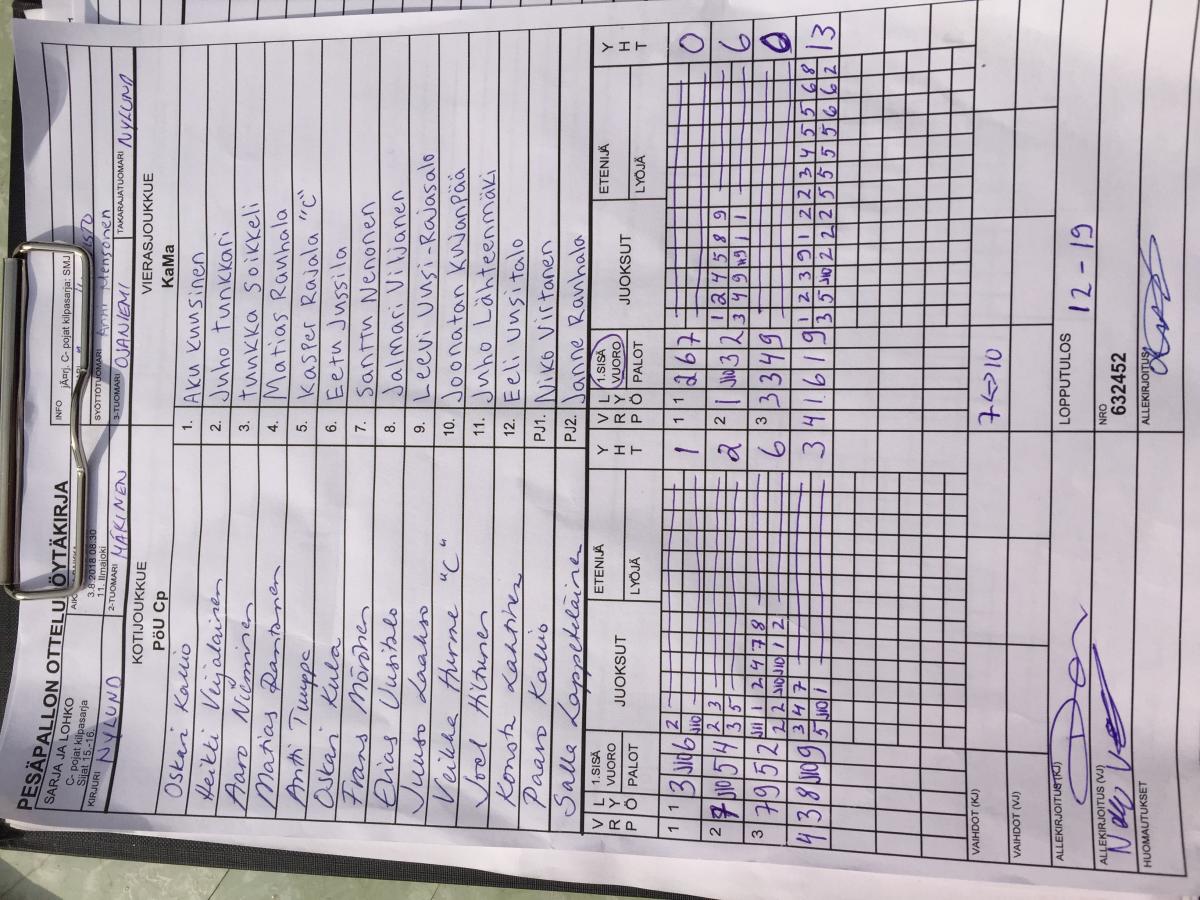 PESÄPALLON OTTELUPÖYTÄKIRJA
SARJA JA LOHKO
C- pojat kilpasarja
Sijat 15.-16.
3.8.2018 08:30
11. Ilmajoki
INFO jÄrj. C- pojat kilpasarja: SMJ
KIRJURI NYLUND
2-TUOMARI MÄKINEN
SYÖTTÖTUOMARI
3-TUOMARI OJANIEMI
TAKARAJATUOMARI NYLUND
KOTIJOUKKUE
PöU Cp
VIERASJOUKKUE
KaMa
Oskeri Kallio 1. Aku Kuusinen
Heikki Veijalainen 2. Juho Tunkkari
Aaro Nieminen 3. Tuukka Soikkeli
Matias Rantanen 4. Matias Rauhala
Antti Tuuppa 5. Kasper Rajala "C"
Oskari Kula 6. Eetu Jussila
Frans 7. Santtu Nenonen
Elias Uusitalo 8. Jalmari Viljanen
Juuso Laakso 9. Leevi Uusi-Rajasalo
Veikka Hurme "C" 10. Joonatan Kujanpää
Joel Hiltunen 11. Juho Lähteenmäki
Konsta Lahtinen 12. Eeli Uusitalo
Paavo Kallio PJ1. Niko Virtanen
Salla Lappeteläinen PJ2. Janne Rauhala
V R L Y P Ö 1.SISÄ VUORO PALOT JUOKSUT ETENIJÄ LYÖJÄ Y H T V R L Y P Ö 1.SISÄ VUORO PALOT JUOKSUT ETENIJÄ LYÖJÄ Y H T
1 1 3 J10 6 2 J10 1 1 1 2 6 7 0
2 7 J10 5 4 2 3 3 5 2 2 1 J10 3 2 1 2 4 5 8 9 3 4 9 J10 9 1 1 6
3 7 9 5 2 J11 1 2 4 7 8 2 2 J10 J10 1 2 6 3 3 3 4 9 0
4 3 8 J10 9 3 4 7 5 J10 1 3 4 1.6 1 9 1 2 3 9 1 2 2 3 4 5 5 6 8 3 5 J10 2 2 2 5 5 5 5 6 6 2 13
VAIHDOT (KJ) 7<=>10
VAIHDOT (VJ)
ALLEKIRJOITUS (KJ)
LOPPUTULOS 12 - 19
ALLEKIRJOITUS (VJ)
NRO
632452
HUOMAUTUKSET
ALLEKIRJOITUS